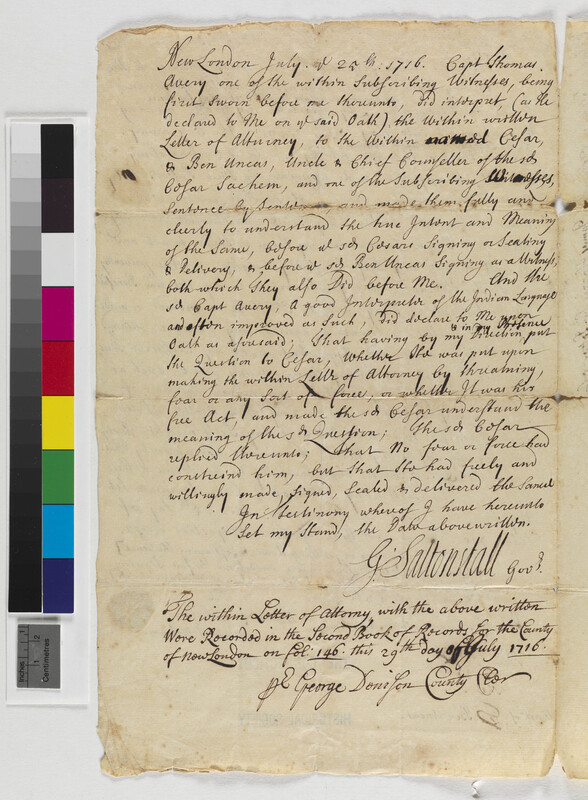 New London July. ye 25th: 1716. Capt Thomas
Avery one of the within Subscribing Witnesses, being
first Sworn before me thereunto, Did interpret (as He
declared to Me on ye said Oath) the Within written
Letter of Atturney, to the within named Cesar,
& Ben Uncas, Uncle & Chief Counseller of the sd
Cesar Sachem, and one of the Subscribing Witnesses,
Sentence by Sentence, and made them fully and
cleerly to understand the true Intent and Meaning
of the Same, before ye sd Cesars Signing or Sealing
& Delivery, & before ye sd Ben Uncas Signing as a Witness;
both which they also Did before Me. And the
sd Capt Avery, a good Interpreter of the Indian Language
and often improved as Such, did declare to Me upon
Oath as aforesaid; that having by my Direction & in my Presence put
the Question to Cesar, Whether He was put upon
making the within Letter of Attorney by threatning,
fear or any Sort of force, or whether It was his
free Act, and made the sd Cesar understand the
meaning of the sd Question; The sd Cesar
replied thereunto; that No fear or force had
constreind him, but that He had freely and
willingly made, Signed, Sealed & delivered the Same
In testimony whereof I have hereunto
Set my Hand, the Date above written.
G Saltonstall Govr.
The within Letter of Attorny, with the above written
Were Recorded in the Second Book of Records for the County
of New London on Fol: 196. this 29th day of July 1716.
pr George Denison County Cler
Inches
1
2
Centimetres